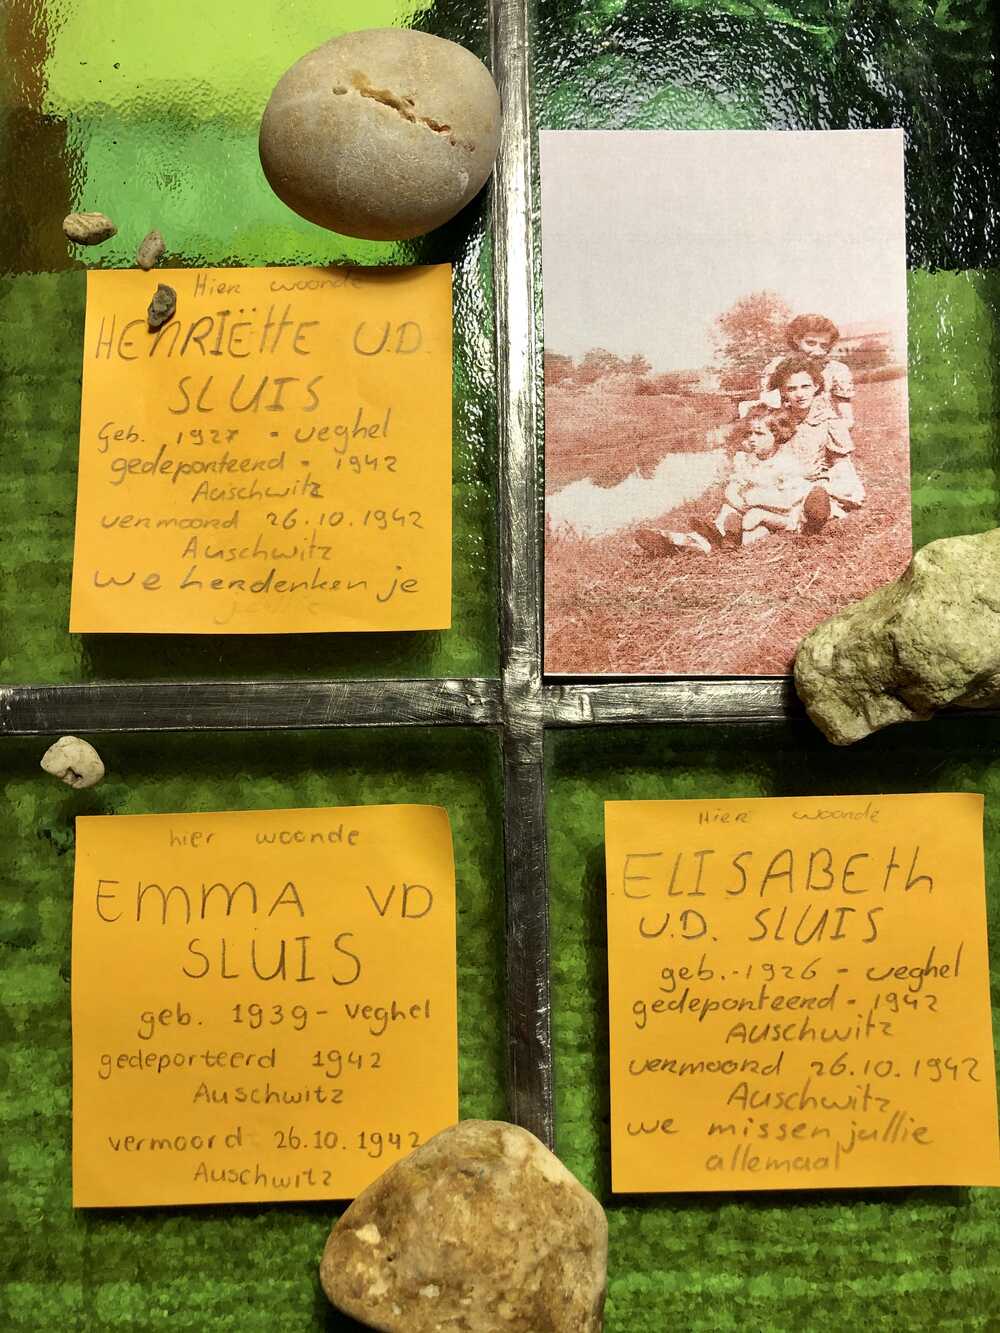 Hier woonde
HENRIËTTE V.D.
SLUIS
Geb. 1927 - veghel
gedeporteerd - 1942
Auschwitz
vermoord 26.10.1942
Auschwitz
we herdenken je
hier woonde
EMMA VD
SLUIS
geb. 1939 - Veghel
gedeporteerd 1942
Auschwitz
vermoord 26.10.1942
Auschwitz
Hier woonde
ELISABETH
V.D. SLUIS
geb. - 1926 - veghel
gedeporteerd - 1942
Auschwitz
vermoord 26.10.1942
Auschwitz
we missen jullie
allemaal